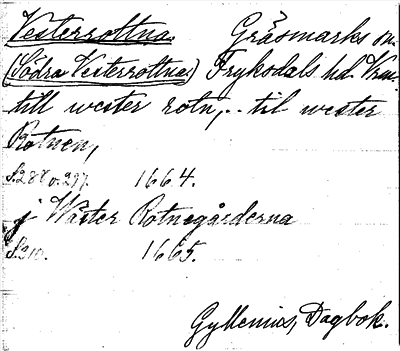 Vesterrottna. Gräsmarks sn.
(Södra Vesterrottna) Fryksdals hd. Vrm.
till wester rotn,.. til wester
Rotnen,
S. 288 o. 297. 1664.
j Wäster Rotnegårderna
S. 310. 1665.
Gyllenius, Dagbok.